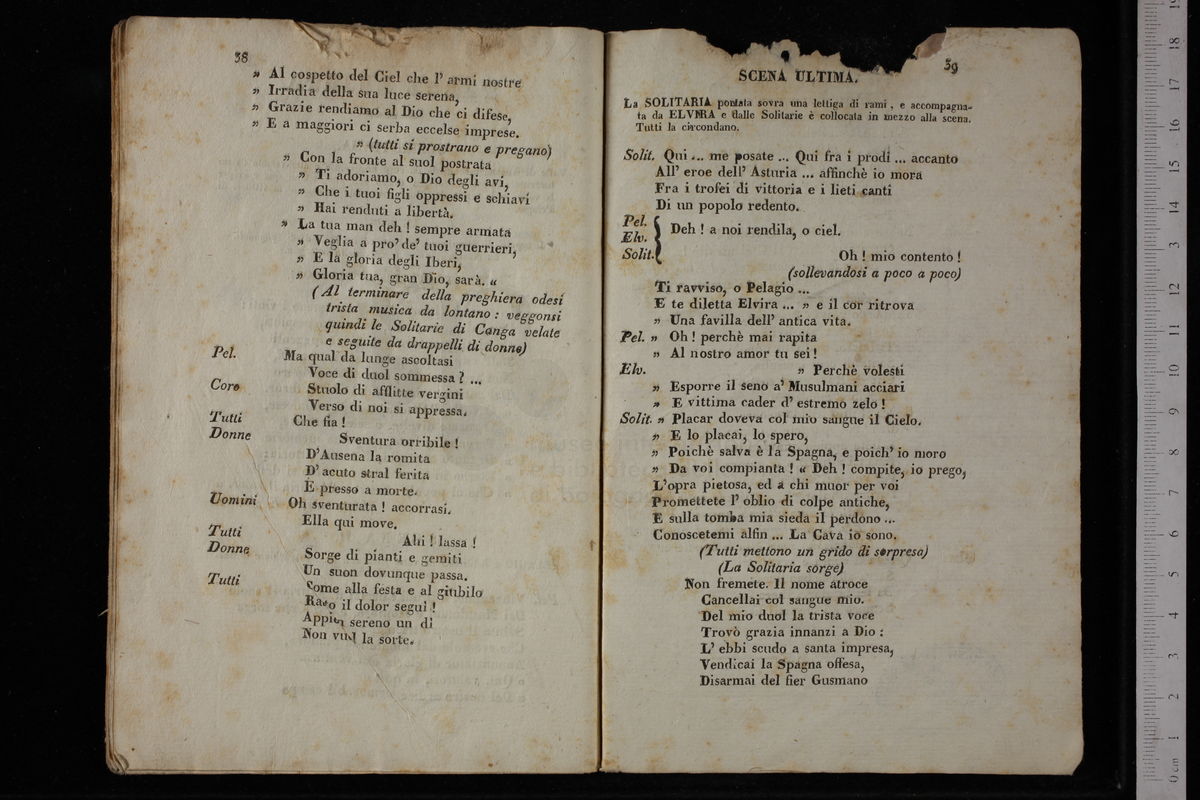 38
» Al cospetto del Ciel che l' armi nostre
» Irradia della sua luce serena,
» Grazie rendiamo al Dio che ci difese,
» E a maggiori ci serba eccelse imprese.
» (tutti si prostrano e pregano)
» Con la fronte al suol postrata
» Ti adoriamo, o Dio degli avi,
» Che i tuoi figli oppressi e schiavi
» Hai renduti a libertà.
» La tua man deh ! sempre armata
» Veglia a pro' de' tuoi guerrieri,
» E la gloria degli Iberi,
» Gloria tua, gran Dio, sarà. «
(Al terminare della preghiera odesi
trista musica da lontano : veggonsi
quindi le Solitarie di Canga velate
e seguite da drappelli di donne)
Pel. Ma qual da lunge ascoltasi
Voce di duol sommessa ? ...
Coro Stuolo di afflitte vergini
Verso di noi si appressa.
Tutti Che fia !
Donne Sventura orribile !
D'Ausena la romita
D' acuto stral ferita
E presso a morte.
Uomini Oh sventurata ! accorrasi.
Ella qui move.
Tutti Ahi ! lassa !
Donne Sorge di pianti e gemiti
Un suon dovunque passa.
Tutti Come alla festa e al giubilo
Ratto il dolor seguì !
Appien sereno un dì
Non vuol la sorte.
39
SCENA ULTIMA.
La SOLITARIA portata sovra una lettiga di rami , e accompagna-
ta da ELVIRA e dalle Solitarie è collocata in mezzo alla scena.
Tutti la circondano.
Solit. Qui ... me posate ... Qui fra i prodi ... accanto
All' eroe dell' Asturia ... affinchè io mora
Fra i trofei di vittoria e i lieti canti
Di un popolo redento.
Pel.
Elv. Deh ! a noi rendila, o ciel.
Solit. Oh ! mio contento !
(sollevandosi a poco a poco)
Ti ravviso, o Pelagio ...
E te diletta Elvira ... » e il cor ritrova
» Una favilla dell' antica vita.
Pel. » Oh ! perchè mai rapita
» Al nostro amor tu sei !
Elv. » Perchè volesti
» Esporre il seno a' Musulmani acciari
» E vittima cader d' estremo zelo !
Solit. » Placar doveva col mio sangue il Cielo.
» E lo placai, lo spero,
» Poichè salva è la Spagna, e poich' io moro
» Da voi compianta ! « Deh ! compite, io prego,
L'opra pietosa, ed a chi muor per voi
Promettete l' oblio di colpe antiche,
E sulla tomba mia sieda il perdono ...
Conoscetemi alfin ... La Cava io sono.
(Tutti mettono un grido di sorpresa)
(La Solitaria sorge)
Non fremete. Il nome atroce
Cancellai col sangue mio.
Del mio duol la trista voce
Trovò grazia innanzi a Dio :
L' ebbi scudo a santa impresa,
Vendicai la Spagna offesa,
Disarmai del fier Gusmano